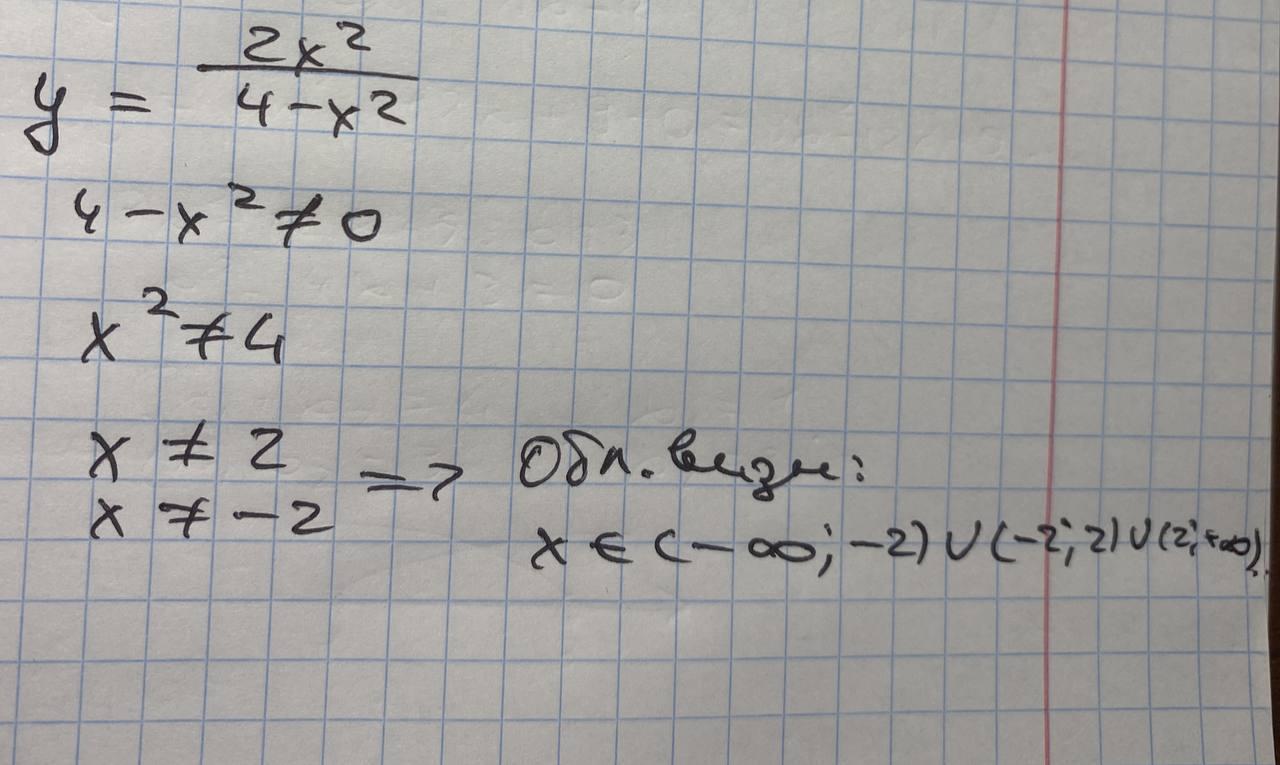 y = 2x²/(4-x²)
4-x² ≠ 0
x² ≠ 4
x ≠ 2
x ≠ -2 => Обл. визн:
x ∈ (-∞; -2) ∪ (-2; 2) ∪ (2; +∞).